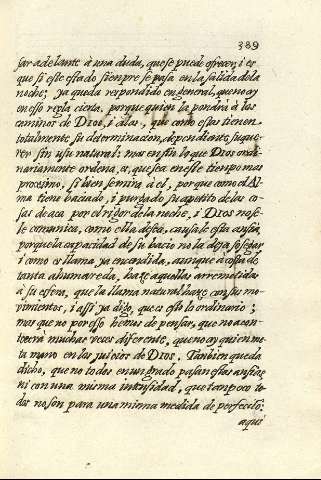 389
sar adelante à una duda, que se puede ofrecer, i es
que si este estado siempre se pasa en la salida de la
noche; ya queda respondido en general, que no ay
en eso regla cierta, porque quien la pondrà à los
caminos de Dios, i à las, que como estas tienen
totalmente su determinacion, dependiante su que-
rer sin usu natural: mas en fin lo que Dios ordi-
nariamente ordena, es, que sea en este tiempo mas
procsimo, si bien se mira à el, porque como el Al-
ma tiene baciado, i purgado su apetito de las co-
sas de acà por el rigor de la noche, i Dios no se
le comunica, como ella desea, causale esta ansia,
porque la capacidad de su bacio no la deja sosegar
i como es llama ya encendida, aunque à costa de
tanta ahumareda, haze aquellas arremetidas
à su esfera, que la llama natural haze con sus mo-
vimientos, i assi ya digo, que es esto lo ordinario;
mas que no por eso hemos de pensar, que no acon-
tecerà muchas veces diferente, que no ay quien me-
ta mano en los juicios de Dios. Tanbien queda
dicho, que no todos en un grado pasan estas ansias
ni con una misma intensidad, que tanpoco to-
dos no son para una misma medida de perfecciõ:
aqui